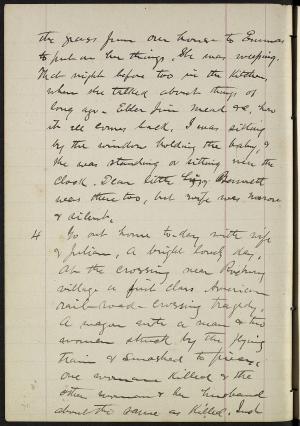 the grass from our house to Emmas
to put on her things. She was weeping.
That night before too in the kitchen
when she talked about things of
long ago - Elder Jim Mead &c, how
it all comes back. I was sitting
by the window holding the baby, &
she was standing or sitting near the
clock. Dear little Bennett
was there too, but wife was
& silent.
4 Go out home to-day with wife
& Julian, A bright lovely day,
At the crossing near Roxbury
village a first class American
rail-road-crossing tragedy,
A wagon with a man & two
women struck by the flying
train & smashed to pieces,
one woman killed & the
other woman & her husband
about the same as killed. Such